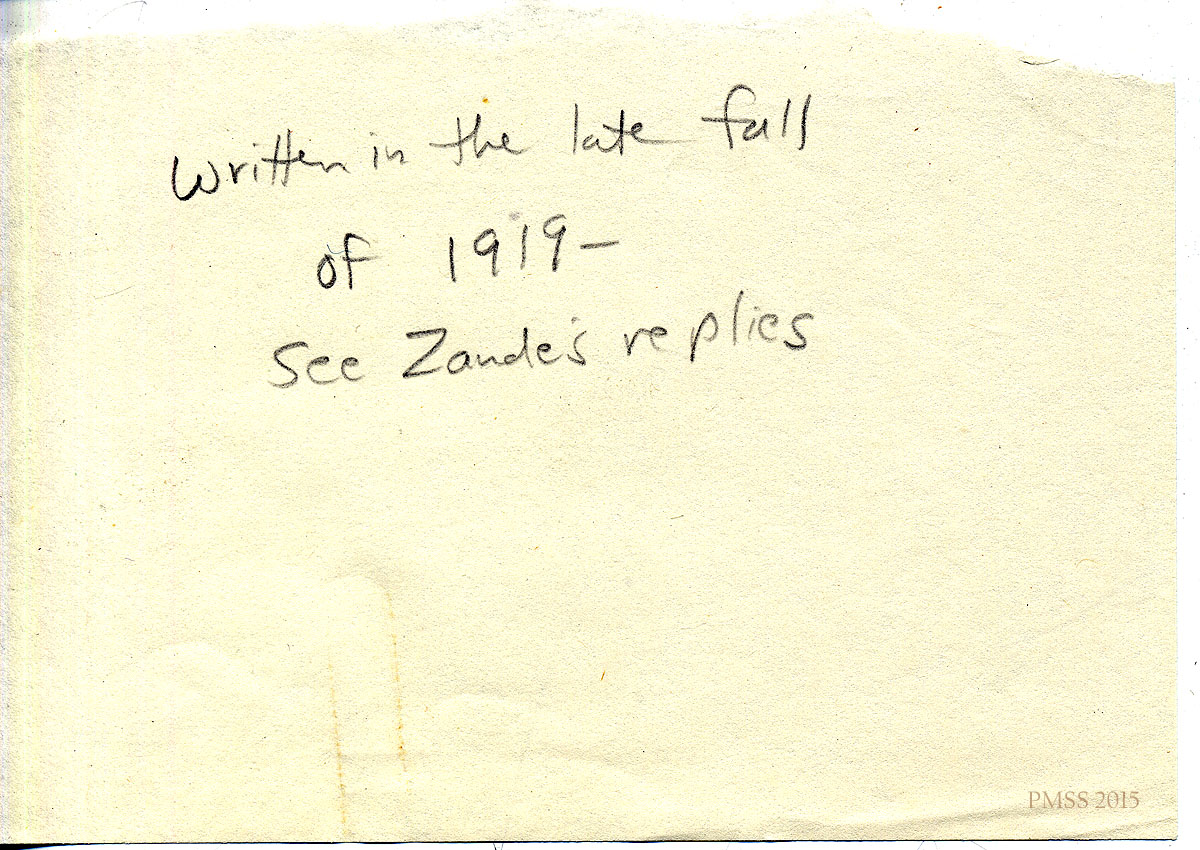 Written in the late fall
of 1919-
See Zande's replies
PMSS 2015